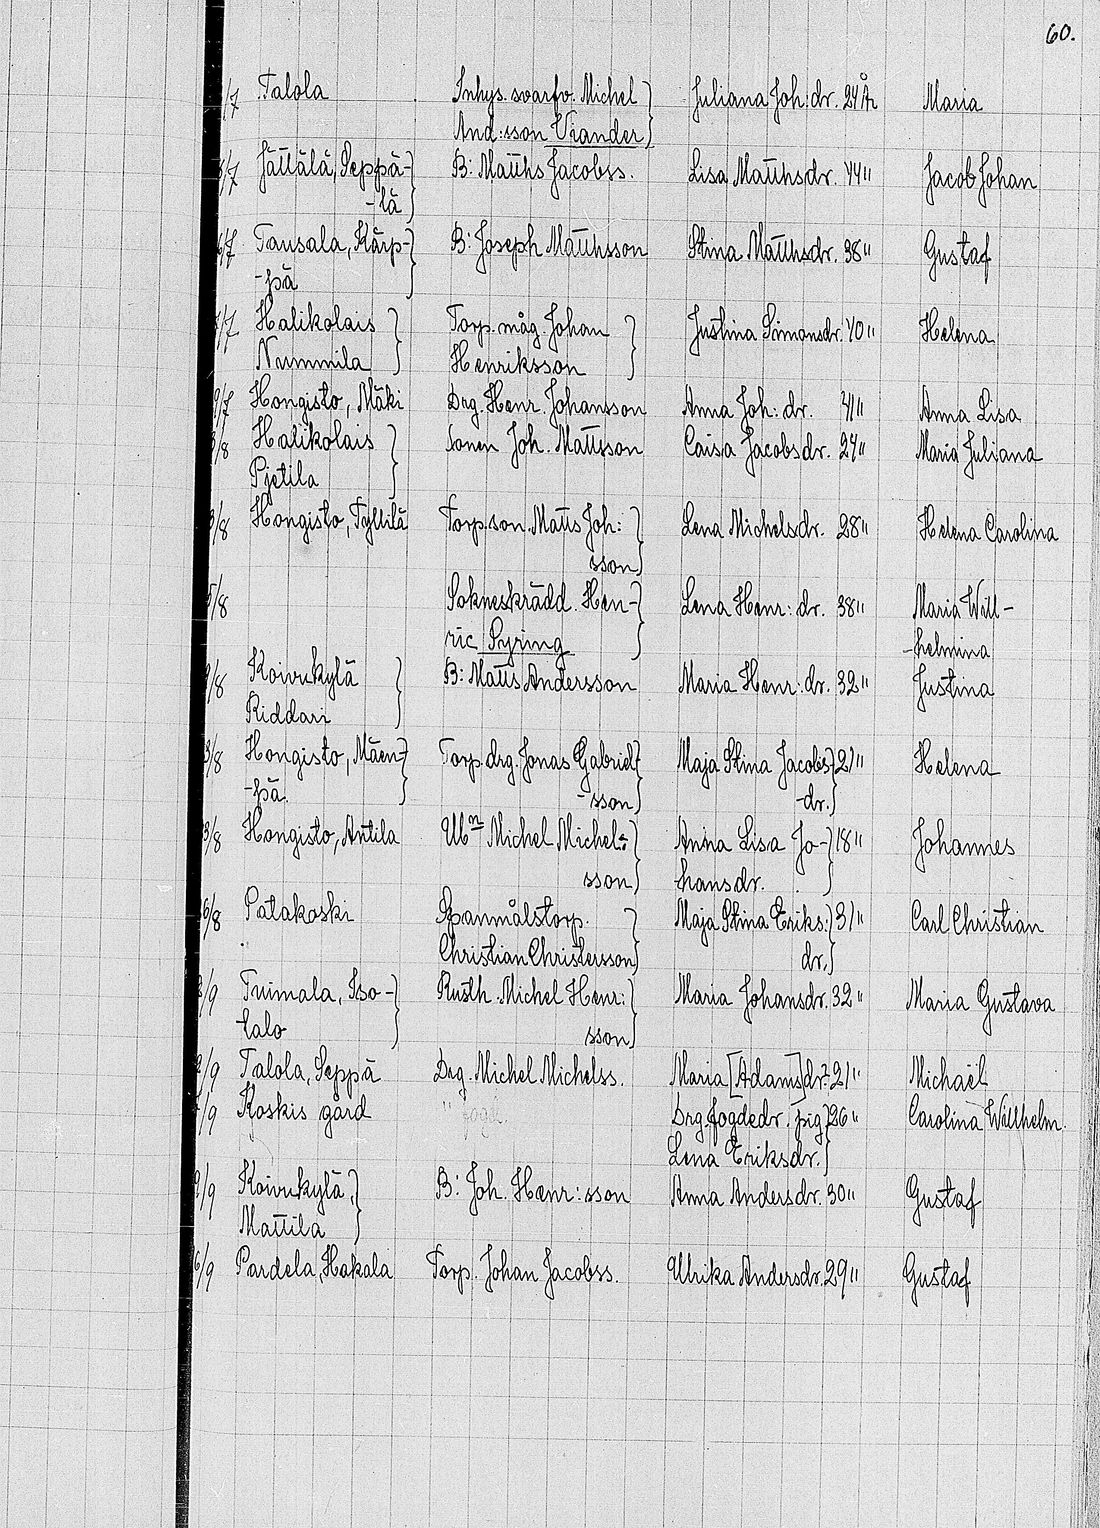 60.
/7 Talola Inhys. svarfv. Michel Juliana Joh:dr. 24 År Maria
And:sson Viander
/7 Jättälä, Seppä- B: Matths Jacobss. Lisa Matthsdr. 44" Jacob Johan
-lä
6/7 Tausala, Kärp- B: Joseph Matthsson Stina Matthsdr. 38" Gustaf
-pä
/7 Halikolais Torp. måg Johan Justina Simonsdr. 40" Helena
Nummila Henriksson
9/7 Hongisto, Mäki Drg. Henr. Johansson Anna Joh: dr. 41" Anna Lisa
/8 Halikolais Sonen Joh. Mattsson Caisa Jacobsdr. 24" Maria Juliana
Pjetila
3/8 Hongisto, Tyllilä Torp.son. Matts Joh: Lena Michelsdr. 28" Helena Carolina
sson
5/8 Sokneskrädd. Hen- Lena Henr: dr. 38" Maria Will-
ric Pyring -helmina
9/8 Koivukylä B: Matts Andersson Maria Henr: dr. 32" Justina
Riddari
3/8 Hongisto, Mäen- Torp. drg. Jonas Gabriel- Maja Stina Jacobs- 21" Helena
-pä. -sson -dr.
3/8 Hongisto, Antila Ubn Michel Michel: Anna Lisa Jo- 18" Johannes
sson hansdr.
6/8 Patakoski Spanmålstorp. Maja Stina Eriks. 31" Carl Christian
Christian Christersson dr.
/9 Tuimala, Iso- Rusth. Michel Henr: Maria Johansdr. 32" Maria Gustava
talo sson
2/9 Talola, Seppä Drg. Michel Michelss. Maria [Adams]dr. 21" Michaël
/9 Koskis gård " Drg. fogdedr. pig. 26" Carolina Willhelm.
Lena Eriksdr.
9/9 Koivukylä, B: Joh. Henr: sson Anna Andersdr. 30" Gustaf
Mattila
6/9 Pardela, Hakala Torp. Johan Jacobss. Ulrika Andersdr. 29" Gustaf